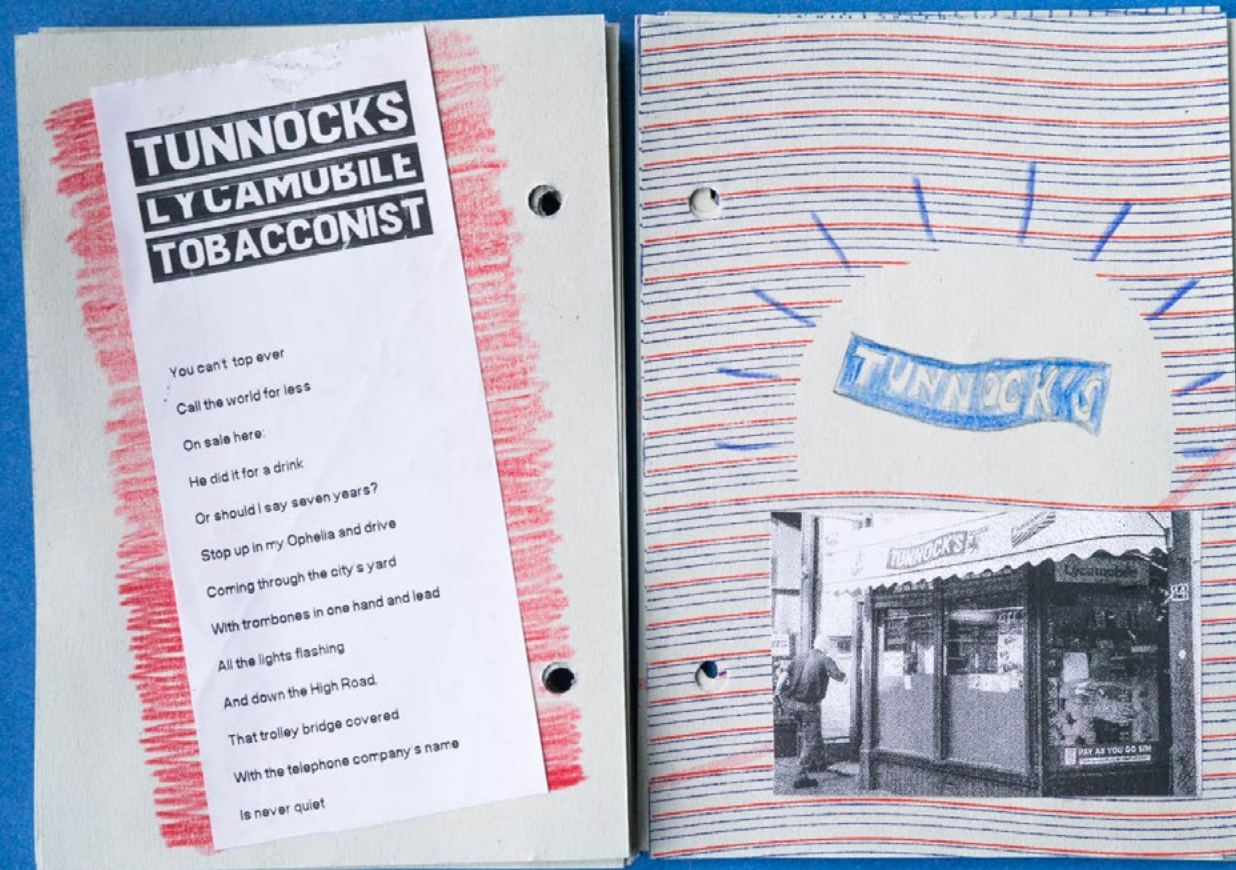 TUNNOCKS
LYCAMOBILE
TOBACCONIST
You can't top ever
Call the world for less
On sale here:
He did it for a drink
Or should I say seven years?
Stop up in my Ophelia and drive
Coming through the city s yard
With trombones in one hand and lead
All the lights flashing
And down the High Road,
That trolley bridge covered
With the telephone company s name
Is never quiet
TUNNOCK'S
TUNNOCK'S
Lycamobile
PAY AS YOU GO SIM